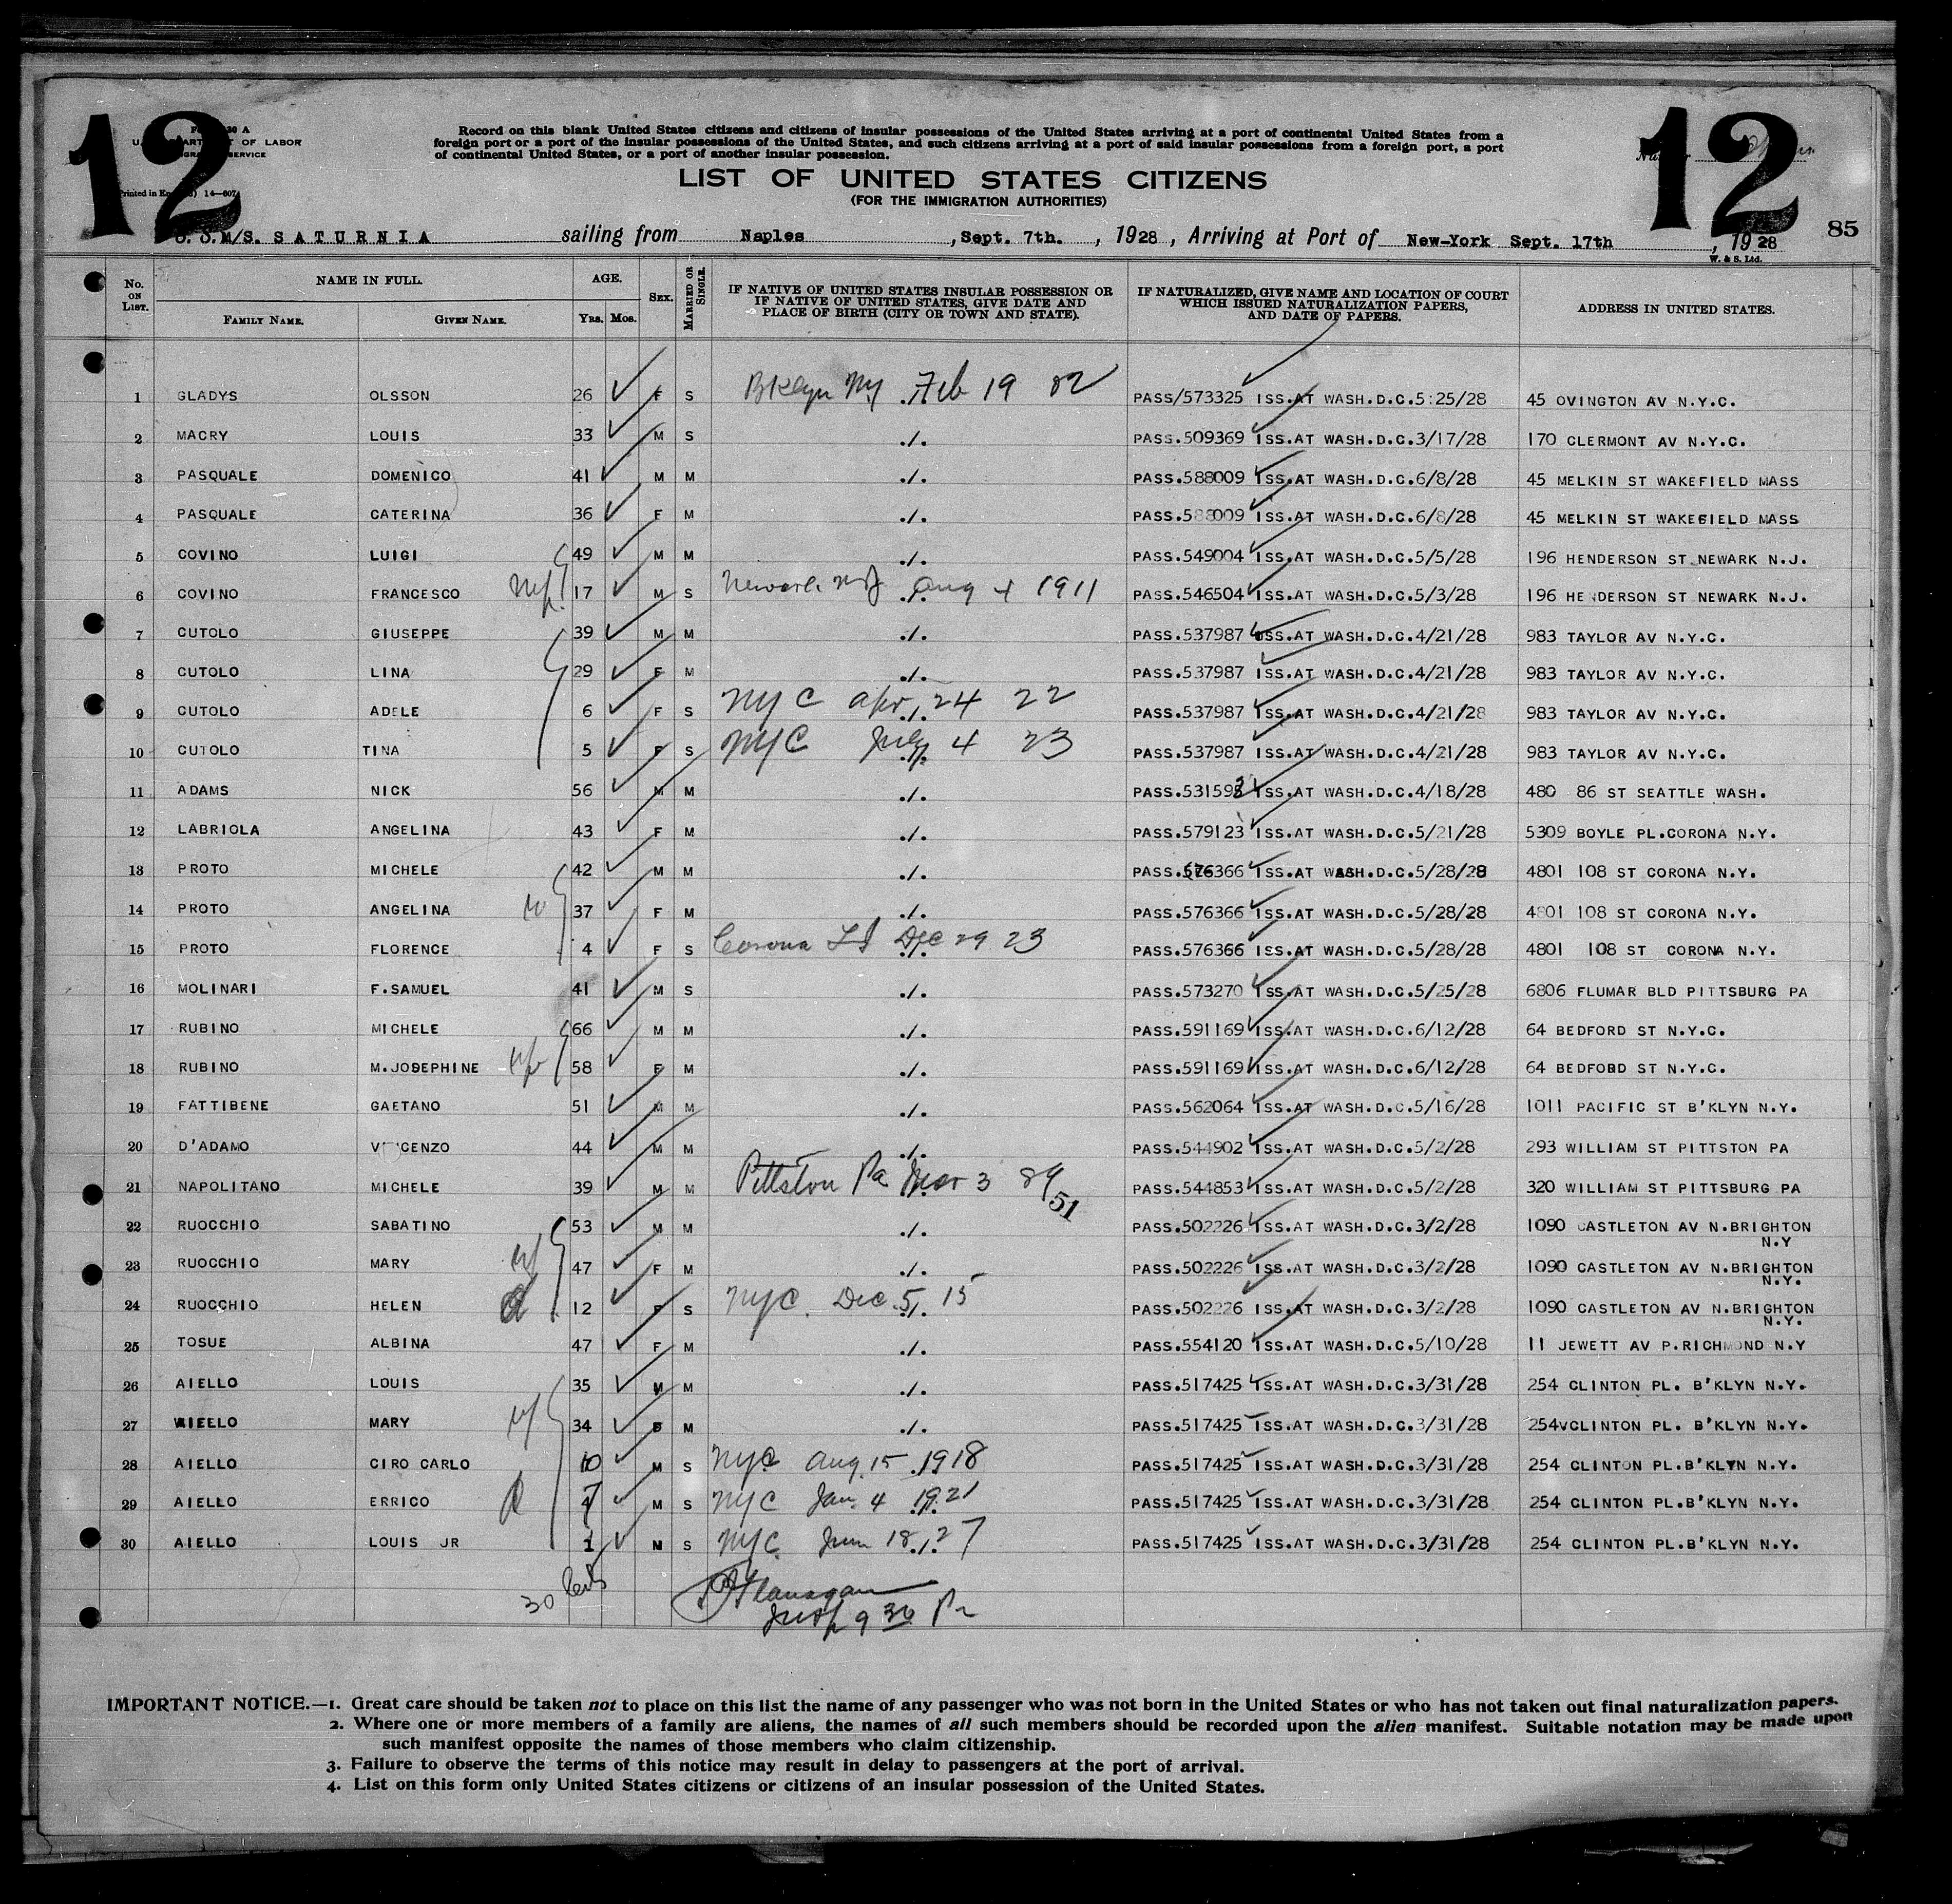 12
12
U. S. DEPARTMENT OF LABOR
IMMIGRATION SERVICE
Record on this blank United States citizens and citizens of insular possessions of the United States arriving at a port of continental United States from a
foreign port or a port of the insular possessions of the United States, and such citizens arriving at a port of said insular possessions from a foreign port, a port
of continental United States, or a port of another insular possession.
LIST OF UNITED STATES CITIZENS
(FOR THE IMMIGRATION AUTHORITIES)
S. S. M/S. SATURNIA sailing from Naples, Sept. 7th., 1928, Arriving at Port of New-York Sept. 17th, 1928
85
W. & S. Ltd.
No. ON LIST. NAME IN FULL. FAMILY NAME. GIVEN NAME. AGE. Yrs. Mos. SEX. MARRIED OR SINGLE. IF NATIVE OF UNITED STATES INSULAR POSSESSION OR IF NATIVE OF UNITED STATES, GIVE DATE AND PLACE OF BIRTH (CITY OR TOWN AND STATE). IF NATURALIZED, GIVE NAME AND LOCATION OF COURT WHICH ISSUED NATURALIZATION PAPERS, AND DATE OF PAPERS. ADDRESS IN UNITED STATES.
1 GLADYS OLSSON 26 F S Bklyn NY Feb 19 02 PASS/573325 ISS.AT WASH.D.C.5:25/28 45 OVINGTON AV N.Y.C.
2 MACRY LOUIS 33 M S ./. PASS.509369 ISS.AT WASH.D.C.3/17/28 170 CLERMONT AV N.Y.C.
3 PASQUALE DOMENICO 41 M M ./. PASS.588009 ISS.AT WASH.D.C.6/8/28 45 MELKIN ST WAKEFIELD MASS
4 PASQUALE CATERINA 36 F M ./. PASS.588009 ISS.AT WASH.D.C.6/8/28 45 MELKIN ST WAKEFIELD MASS
5 COVINO LUIGI 49 M M ./. PASS.549004 ISS.AT WASH.D.C.5/5/28 196 HENDERSON ST NEWARK N.J.
6 COVINO FRANCESCO 17 M S Newark NJ Aug 4 1911 ./. PASS.546504 ISS.AT WASH.D.C.5/3/28 196 HENDERSON ST NEWARK N.J.
7 CUTOLO GIUSEPPE 39 M M ./. PASS.537987 ISS.AT WASH.D.C.4/21/28 983 TAYLOR AV N.Y.C.
8 CUTOLO LINA 29 F M ./. PASS.537987 ISS.AT WASH.D.C.4/21/28 983 TAYLOR AV N.Y.C.
9 CUTOLO ADELE 6 F S NYC Apr 24 22 ./. PASS.537987 ISS.AT WASH.D.C.4/21/28 983 TAYLOR AV N.Y.C.
10 CUTOLO TINA 5 F S NYC July 4 23 ./. PASS.537987 ISS.AT WASH.D.C.4/21/28 983 TAYLOR AV N.Y.C.
11 ADAMS NICK 56 M M ./. PASS.531593 ISS.AT WASH.D.C.4/18/28 480 86 ST SEATTLE WASH.
12 LABRIOLA ANGELINA 43 F M ./. PASS.579123 ISS.AT WASH.D.C.5/21/28 5309 BOYLE PL.CORONA N.Y.
13 PROTO MICHELE 42 M M ./. PASS.576366 ISS.AT WASH.D.C.5/28/28 4801 108 ST CORONA N.Y.
14 PROTO ANGELINA 37 F M ./. PASS.576366 ISS.AT WASH.D.C.5/28/28 4801 108 ST CORONA N.Y.
15 PROTO FLORENCE 4 F S Corona LI Dec 29 23 ./. PASS.576366 ISS.AT WASH.D.C.5/28/28 4801 108 ST CORONA N.Y.
16 MOLINARI F.SAMUEL 41 M S ./. PASS.573270 ISS.AT WASH.D.C.5/25/28 6806 FLUMAR BLD PITTSBURG PA
17 RUBINO MICHELE 66 M M ./. PASS.591169 ISS.AT WASH.D.C.6/12/28 64 BEDFORD ST N.Y.C.
18 RUBINO M.JOSEPHINE 58 F M ./. PASS.591169 ISS.AT WASH.D.C.6/12/28 64 BEDFORD ST N.Y.C.
19 FATTIBENE GAETANO 51 M M ./. PASS.562064 ISS.AT WASH.D.C.5/16/28 1011 PACIFIC ST B'KLYN N.Y.
20 D'ADAMO VINCENZO 44 M M ./. PASS.544902 ISS.AT WASH.D.C.5/2/28 293 WILLIAM ST PITTSTON PA
21 NAPOLITANO MICHELE 39 M M Pittston Pa Mar 3 89 PASS.544853 ISS.AT WASH.D.C.5/2/28 320 WILLIAM ST PITTSBURG PA
51
22 RUOCCHIO SABATINO 53 M M ./. PASS.502226 ISS.AT WASH.D.C.3/2/28 1090 CASTLETON AV N.BRIGHTON N.Y
23 RUOCCHIO MARY 47 F M ./. PASS.502226 ISS.AT WASH.D.C.3/2/28 1090 CASTLETON AV N.BRIGHTON N.Y.
24 RUOCCHIO HELEN 12 F S NYC. Dec 5 15 ./. PASS.502226 ISS.AT WASH.D.C.3/2/28 1090 CASTLETON AV N.BRIGHTON N.Y.
25 TOSUE ALBINA 47 F M ./. PASS.554120 ISS.AT WASH.D.C.5/10/28 11 JEWETT AV P.RICHMOND N.Y
26 AIELLO LOUIS 35 M M ./. PASS.517425 ISS.AT WASH.D.C.3/31/28 254 CLINTON PL. B'KLYN N.Y.
27 AIELLO MARY 34 F M ./. PASS.517425 ISS.AT WASH.D.C.3/31/28 254 CLINTON PL. B'KLYN N.Y.
28 AIELLO CIRO CARLO 10 M S NYC Aug 15 1918 PASS.517425 ISS.AT WASH.D.C.3/31/28 254 CLINTON PL.B'KLYN N.Y.
29 AIELLO ERRICO 7 M S NYC Jan 4 1921 PASS.517425 ISS.AT WASH.D.C.3/31/28 254 CLINTON PL.B'KLYN N.Y.
30 AIELLO LOUIS JR 1 M S NYC Jun 18 27 ./. PASS.517425 ISS.AT WASH.D.C.3/31/28 254 CLINTON PL.B'KLYN N.Y.
30
Flanagan
Insp 9 30
IMPORTANT NOTICE.—1. Great care should be taken not to place on this list the name of any passenger who was not born in the United States or who has not taken out final naturalization papers.
2. Where one or more members of a family are aliens, the names of all such members should be recorded upon the alien manifest. Suitable notation may be made upon
such manifest opposite the names of those members who claim citizenship.
3. Failure to observe the terms of this notice may result in delay to passengers at the port of arrival.
4. List on this form only United States citizens or citizens of an insular possession of the United States.